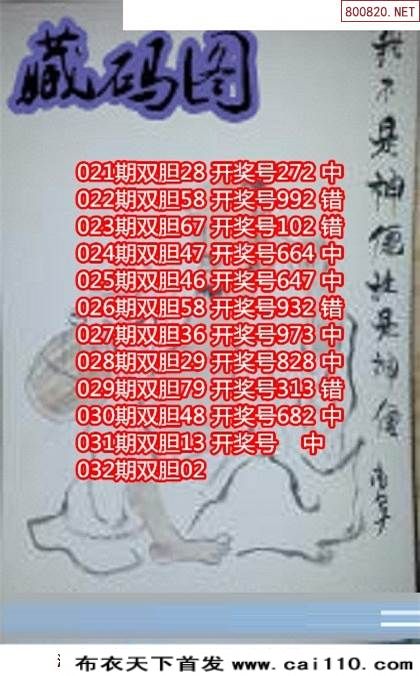 800820.NET
藏码图
021期双胆28 开奖号272 中
022期双胆58 开奖号992 错
023期双胆67 开奖号102 错
024期双胆47 开奖号664 中
025期双胆46 开奖号647 中
026期双胆58 开奖号932 错
027期双胆36 开奖号973 中
028期双胆29 开奖号828 中
029期双胆79 开奖号313 错
030期双胆48 开奖号682 中
031期双胆13 开奖号 中
032期双胆02
我不是神僊谁是神僊
布衣天下首发 www.cai110.com